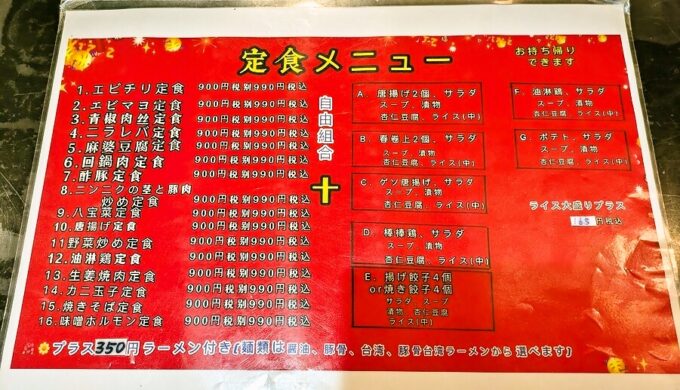 定食メニュー
お持ち帰り
できます
1.エビチリ定食 900円税別990円税込
2.エビマヨ定食 900円税别990円税込
3.青椒肉丝定食 900円税别990円税込
4.ニラレバ定食 900円税别990円税込
5.麻婆豆腐定食 900円税别990円税込
6.回鍋肉定食 900円税别990円税込
7.酢豚定食 900円税别990円税込
8.ニンニクの茎と豚肉
炒め定食 900円税别990円税込
9.八宝菜定食 900円税别990円税込
10.唐揚げ定食 900円税别990円税込
11野菜炒め定食 900円税别990円税込
12.油淋鶏定食 900円税别990円税込
13.生姜焼肉定食 900円税别990円税込
14.カニ玉子定食 900円税别990円税込
15.焼きそば定食 900円税别990円税込
16.味噌ホルモン定食 900円税别990円税込
自由組合
＋
A. 唐揚げ2個、サラダ
スープ、漬物
杏仁豆腐、ライス(中)
B. 春巻上2個、サラダ
スープ、漬物
杏仁豆腐、ライス(中)
C. ゲソ唐揚げ、サラダ
スープ、漬物
杏仁豆腐、ライス(中)
D. 棒棒鶏、サラダ
スープ、漬物
杏仁豆腐、ライス(中)
E. 揚げ餃子4個
or焼き餃子4個
サラダ、スープ
漬物、杏仁豆腐
ライス(中)
F. 油淋鶏、サラダ
スープ、漬物
杏仁豆腐、ライス(中)
G. ポテト、サラダ
スープ、漬物
杏仁豆腐、ライス(中)
ライス大盛りプラス
165円税込
プラス350円ラーメン付き(麺類は醤油、豚骨、台湾、豚骨台湾ラーメンから選べます)